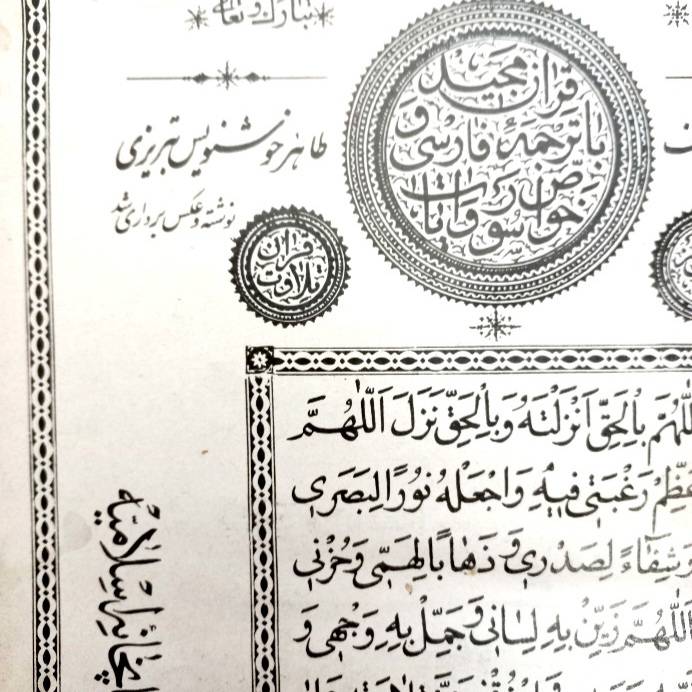 تبارک و تعالی
قرآن مجید
با ترجمهٔ فارسی و
خواص
سور و آیات
طاهر خوشنویس تبریزی
نوشته و عکس برداری شد
قرآن
تلاوت
اَللّٰهُمَّ بِالْحَقِّ اَنْزَلْتَهُ وَبِالْحَقِّ نَزَلَ اَللّٰهُمَّ
عَظِّمْ رَغْبَتی فیهِ وَاجْعَلْهُ نُورًا لِبَصَری
وَشِفَآءً لِصَدْری وَ ذَهابًا لِهَمّی وَحُزْنی
اَللّٰهُمَّ زَیِّنْ بِهِ لِسٰانی وَجَمِّلْ بِهِ وَجْهی وَ
اسلامیه